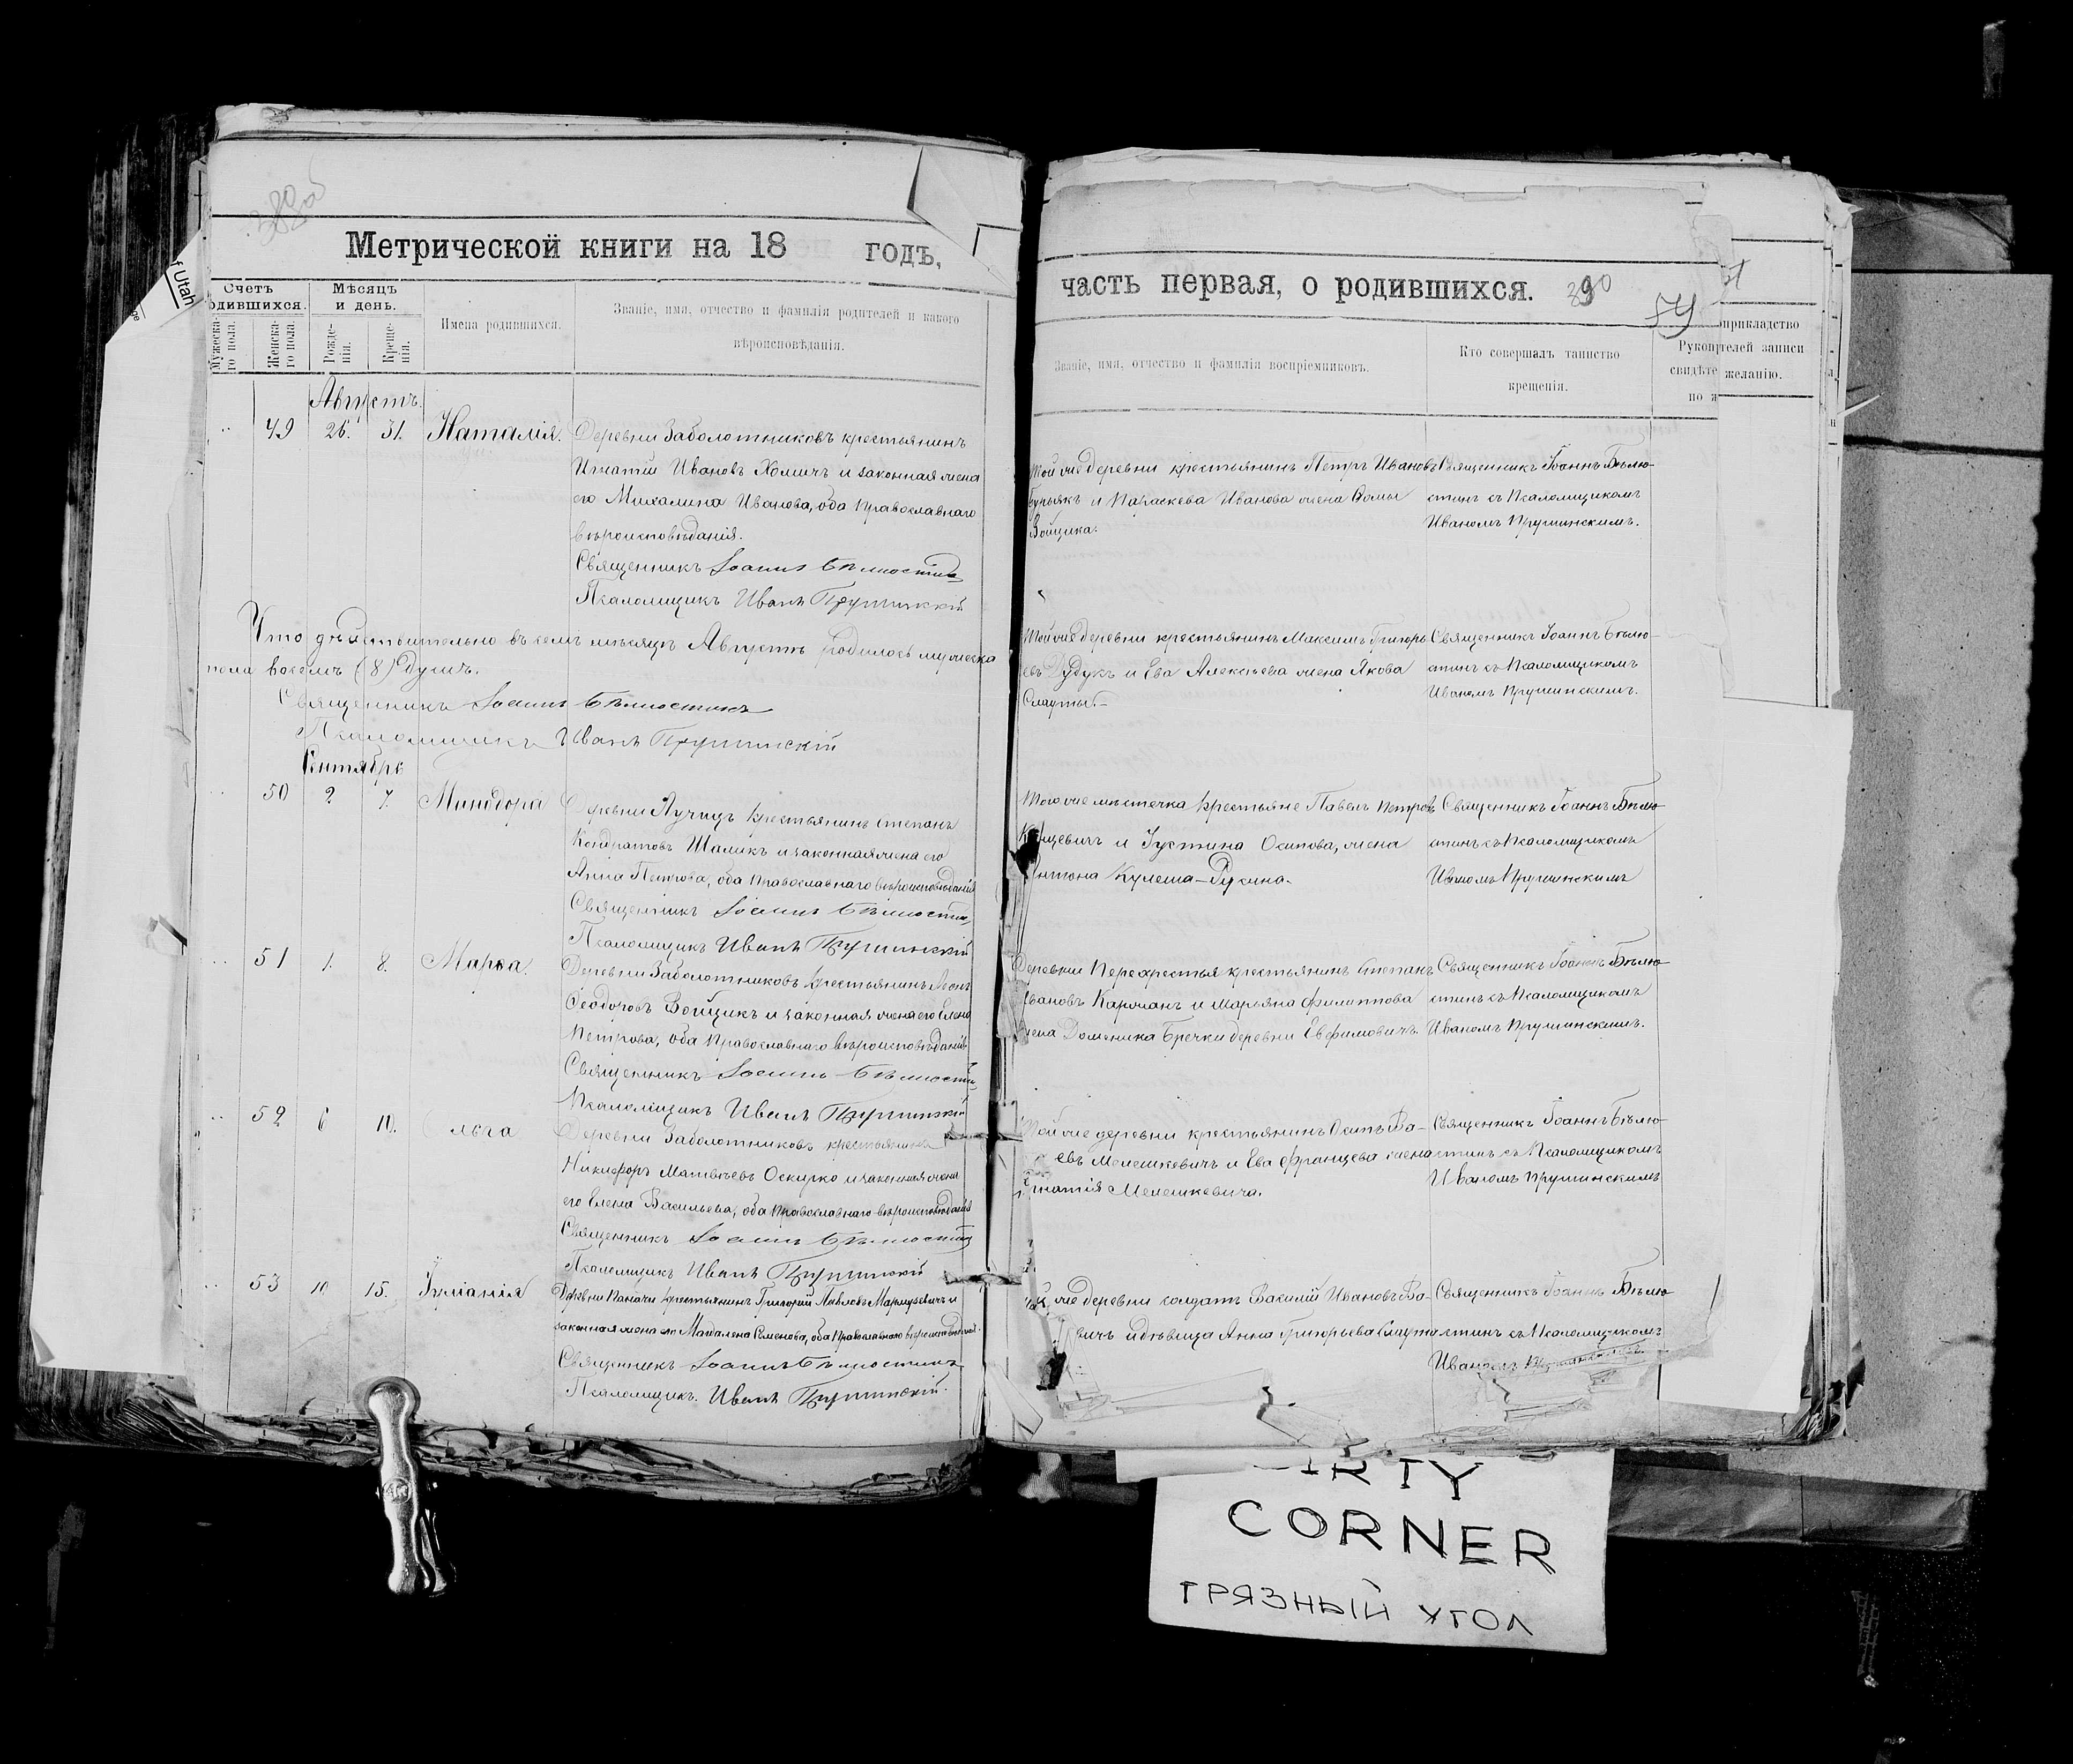 389об
Метрической книги на 18 годъ,
Счетъ родившихся.
Мѣсяцъ и день.
Мужеска-го пола.
Женска-го пола.
Рожде-нія.
Креще-нія.
Имена родившихся.
Званіе, имя, отчество и фамилія родителей и какого
вѣроисповѣданія.
Августъ.
49 26. 31. Наталія. Деревни Заболотниковъ крестьянинъ
Игнатій Ивановъ Хомичъ и законная жена
его Михалина Иванова, оба Православнаго
вѣроисповѣданія.
Священникъ Іоаннъ Бѣлюстинъ
Псаломщикъ Иванъ Прушинскій
Что дѣйствительно въ семъ мѣсяцѣ Августѣ родилось мужеска
пола восемь (8) душъ.
Священникъ Іоаннъ Бѣлюстинъ
Псаломщикъ Иванъ Прушинскій
Сентябрь
50 2 7. Минодора Деревни Лучицъ крестьянинъ Степанъ
Кондратовъ Шаликъ и законная жена его
Анна Петрова, оба Православнаго вѣроисповѣданія
Священникъ Іоаннъ Бѣлюстинъ
Псаломщикъ Иванъ Прушинскій
51 1. 8. Марѳа. Деревни Заболотниковъ крестьянинъ
Ѳеодоровъ Войщикъ и законная жена его Елена
Петрова, оба Православнаго вѣроисповѣданія
Священникъ Іоаннъ Бѣлюстинъ
Псаломщикъ Иванъ Прушинскій
52 6 10. Ольга Деревни Заболотниковъ крестьянинъ
Никифоръ Матвѣевъ Оскирко и законная жена
его Елена Васильева, оба Православнаго вѣроисповѣданія
Священникъ Іоаннъ Бѣлюстинъ
Псаломщикъ Иванъ Прушинскій
53 10 15. Іуліанія Деревни крестьянинъ Григорій Павловъ и
законная жена его Магдалена Семенова, оба Православнаго вѣроисповѣданія.
Священникъ Іоаннъ Бѣлюстинъ
Псаломщикъ. Иванъ Прушинскій.
часть первая, о родившихся. 390
54
Званіе, имя, отчество и фамилія воспріемниковъ.
Кто совершалъ таинство
крещенія.
Рукоприкладство
свидѣтелей записи
по желанію.
Той же деревни крестьянинъ Петръ Ивановъ
и Параскева Иванова жена Ѳомы
Войщика.
Священникъ Іоаннъ Бѣлю-
стинъ съ Псаломщикомъ
Иваномъ Прушинскимъ.
Той же деревни крестьянинъ Максимъ Григорь-
евъ Дудукъ и Ева Алексѣева жена Якова
Слауты.
Священникъ Іоаннъ Бѣлю-
стинъ съ Псаломщикомъ
Иваномъ Прушинскимъ.
Того же мѣстечка крестьяне Павелъ Петровъ
и Іустина Осипова, жена
Антона Кулеша-Русина.
Священникъ Іоаннъ Бѣлю-
стинъ съ Псаломщикомъ
Иваномъ Прушинскимъ
Деревни Перехрестья крестьянинъ Степанъ
Ивановъ Карожанъ и Марьяна Филиппова
жена Доменика Бречки деревни Евфимовичъ
Священникъ Іоаннъ Бѣлю-
стинъ съ Псаломщикомъ
Иваномъ Прушинскимъ.
Той же деревни крестьянинъ Осипъ
евъ Мелешкевичъ и Ева Францева жена
Игнатія Мелешкевича.
Священникъ Іоаннъ Бѣлю-
стинъ съ Псаломщикомъ
Иваномъ Прушинскимъ
Той же деревни солдатъ Василій Ивановъ Ва-
вичъ и дѣвица Анна Григорьева Слаута
Священникъ Іоаннъ Бѣлю-
стинъ съ Псаломщикомъ
Иваномъ Прушинскимъ
f Utah
DIRTY
CORNER
ГРЯЗНЫЙ УГОЛ